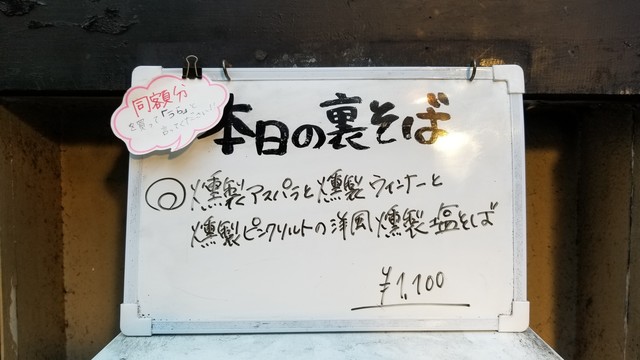 同額分
を買って「うらお」と
言ってくださーい!!
本日の裏そば
◎燻製アスパラと燻製ウィンナーと
燻製ピンクソルトの洋風燻製塩そば
¥1,100